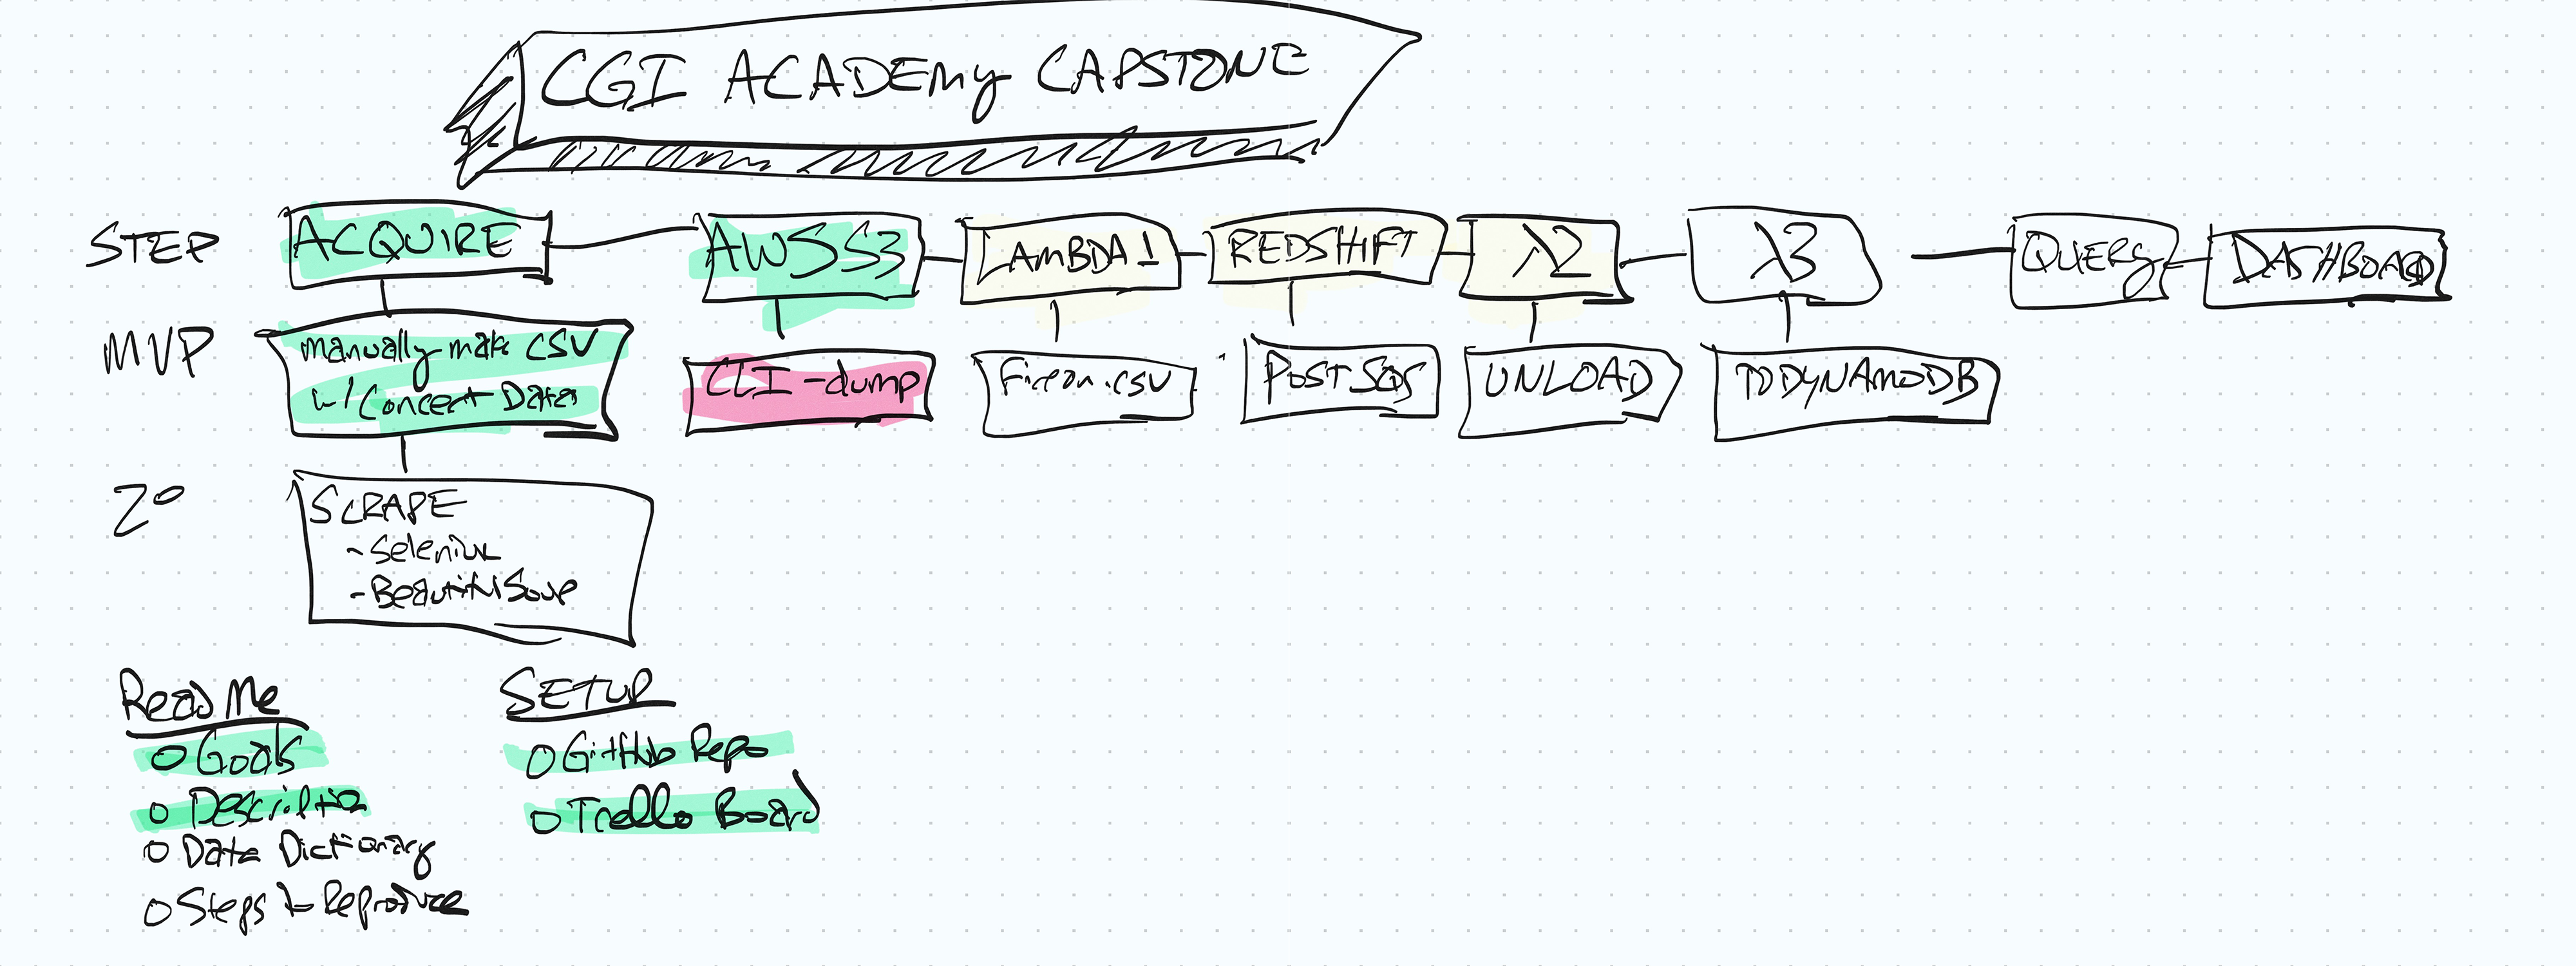 CGI ACADEMY CAPSTONE
STEP ACQUIRE AWS S3 LAMBDA 1 REDSHIFT λ2 λ3 QUERY DASHBOARD
MVP manually make CSV
w/ Concert Data
CLI-dump
.csv
UNLOAD
TO DYNAMODB
2°
SCRAPE
- Selenium
- BeautifulSoup
ReadMe
○ Goals
○ Description
○ Data Dictionary
○ Steps to Reproduce
SETUP
○ GitHub Repo
○ Trello Board